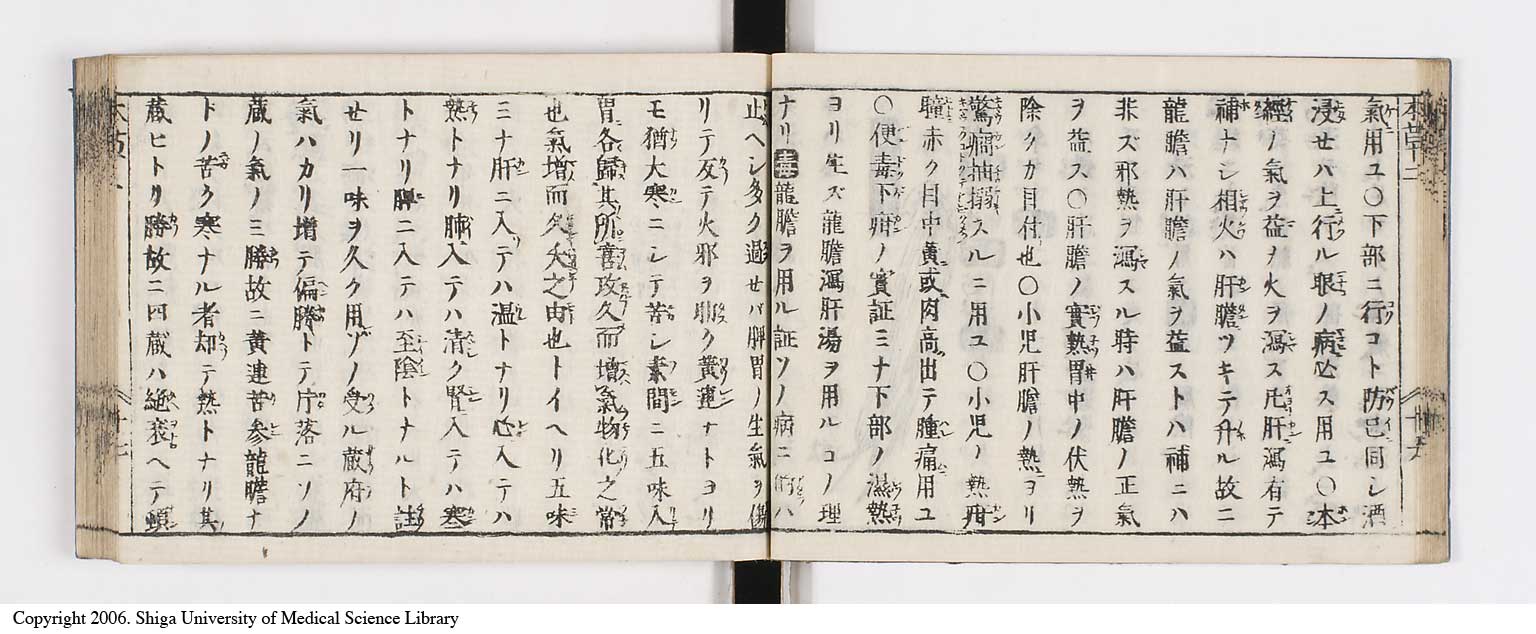 氣用ユ〇下部ニ行コト防已同シ酒
浸セハ上行ル眼ノ病必ス用ユ〇本
經ノ氣ヲ益ノ火ヲ瀉ス凡肝瀉有テ
補ナシ相火ハ肝膽ツキテ升ル故ニ
龍膽ハ肝膽ノ氣ヲ益ストハ補ニハ
非ズ邪熱ヲ瀉スル時ハ肝膽ノ正氣
ヲ益ス〇肝膽ノ實熱胃中ノ伏熱ヲ
除クカ目付也〇小児肝膽ノ熱ヨリ
驚癇抽搦スルニ用ユ〇小児ノ熱疳
瞳赤ク目中黄或肉高出テ腫痛用ユ
〇便毒下疳ノ實証ミナ下部ノ濕熱
ヨリ生ズ龍膽瀉肝湯ヲ用ルコノ理
ナリ毒龍膽ヲ用ル証ソノ病ニ ハ
止ヘシ多ク過セバ脾胃ノ生氣ヲ傷
リテ反テ火邪ヲ助ク黄連ナトヨリ
モ猶大寒ニシテ苦シ素問ニ五味入
胃各歸其所喜攻久而增氣物化之常
也氣增而久夭之由也トイヘリ五味
ミナ肝ニ入テハ温トナリ心入テハ
熱トナリ肺入テハ清ク腎入テハ寒
トナリ脾ニ入テハ至陰トナルト註
セリ一味ヲ久ク用ヅノ受ル蔵府ノ
氣ハカリ增テ偏勝トテ片落ニソノ
蔵ノ氣ノミ勝故ニ黄連苦參龍膽ナ
トノ苦ク寒ナル者却テ熱トナリ其
蔵ヒトリ勝故ニ四蔵ハ絶衰ヘテ頓
Copyright 2006. Shiga University of Medical Science Library